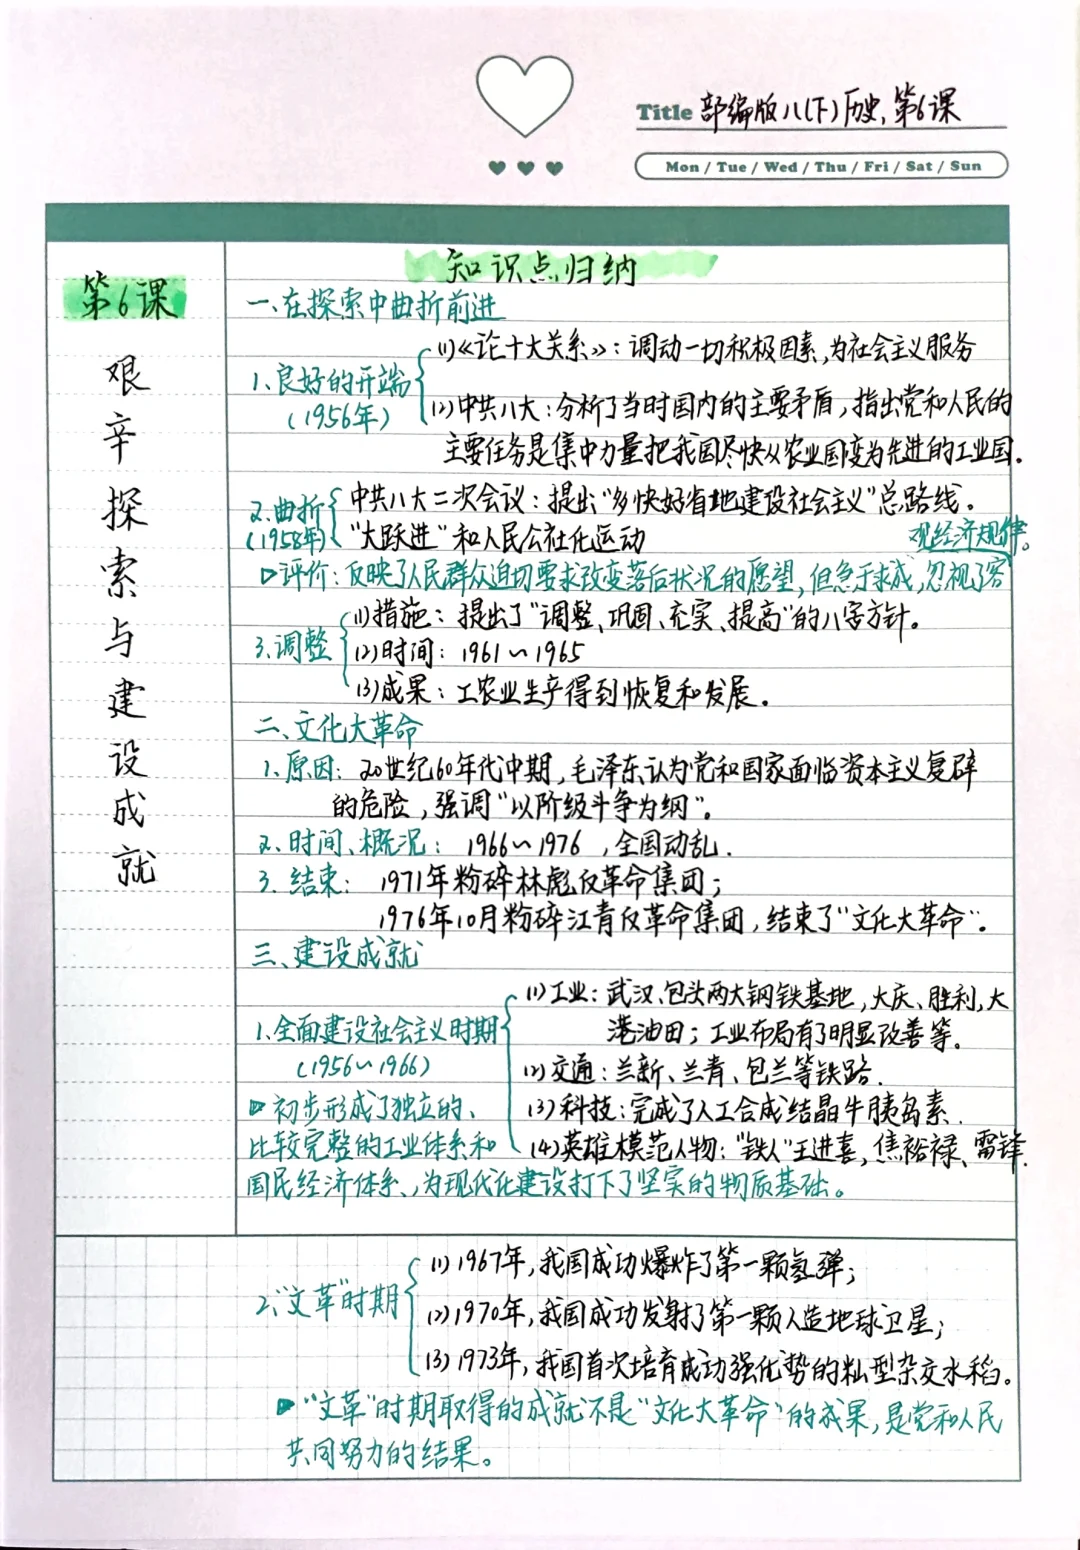 Title 部编版八(下)历史,第6课
Mon / Tue / Wed / Thu / Fri / Sat / Sun
第6课
艰辛探索与建设成就
知识点归纳
一、在探索中曲折前进
1、良好的开端
(1956年)
(1)《论十大关系》:调动一切积极因素,为社会主义服务
(2)中共八大:分析了当时国内的主要矛盾,指出党和人民的
主要任务是集中力量把我国尽快从农业国变为先进的工业国.
2.曲折
(1958年)
中共八大二次会议:提出"多快好省地建设社会主义"总路线.
"大跃进"和人民公社化运动
▷评价:反映了人民群众迫切要求改变落后状况的愿望,但急于求成,忽视了客
观经济规律。
3.调整
(1)措施:提出了"调整、巩固、充实、提高"的八字方针。
(2)时间:1961~1965
(3)成果:工农业生产得到恢复和发展.
二、文化大革命
1、原因:20世纪60年代中期,毛泽东认为党和国家面临资本主义复辟
的危险,强调"以阶级斗争为纲".
2、时间、概况:1966~1976,全国动乱.
3.结束:1971年粉碎林彪反革命集团;
1976年10月粉碎江青反革命集团,结束了"文化大革命".
三、建设成就
1、全面建设社会主义时期
(1956~1966)
(1)工业:武汉、包头两大钢铁基地,大庆、胜利,大
港油田;工业布局有了明显改善等.
(2)交通:兰新、兰青、包兰等铁路.
(3)科技:完成了人工合成结晶牛胰岛素.
(4)英雄模范人物:"铁人"王进喜,焦裕禄、雷锋.
▷初步形成了独立的、
比较完整的工业体系和
国民经济体系、为现代化建设打下了坚实的物质基础。
2、"文革"时期
(1)1967年,我国成功爆炸了第一颗氢弹;
(2)1970年,我国成功发射了第一颗人造地球卫星;
(3)1973年,我国首次培育成功强优势的籼型杂交水稻。
▷"文革"时期取得的成就不是"文化大革命"的成果,是党和人民
共同努力的结果。